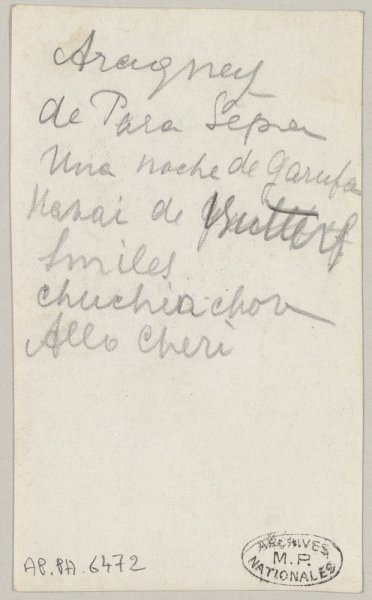 Aragney
de Para Sépa
Una noche de Garufa
de Butterf
Smiles
chuchiachov
Allo Cheri
AP.PA.6472
ARCHIVES
M.P.
NATIONALES